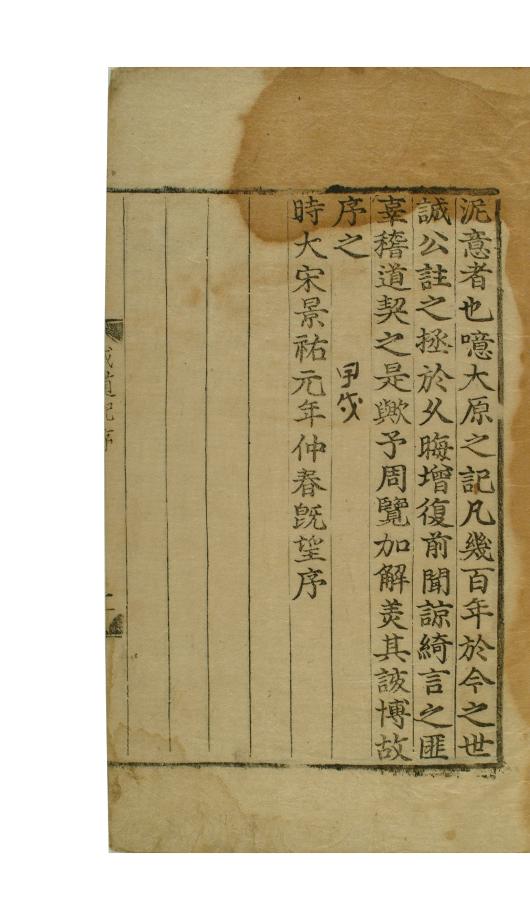 泥意者也噫大原之記凡幾百年於今之世
誠公註之拯於久晦增復前聞諒綺言之匪
辜稽道契之是歟予周覽加解羙其詖博故
序之
甲戌
時大宋景祐元年仲春旣望序
成道記序